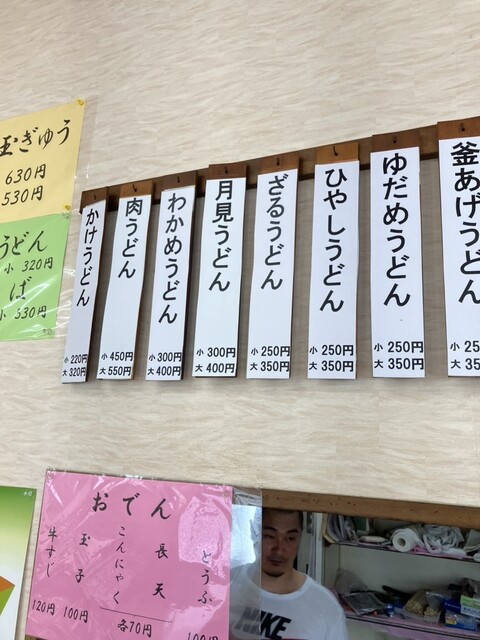 釜あげうどん
小 25
大 35
ゆだめうどん
小 250円
大 350円
ひやしうどん
小 250円
大 350円
ざるうどん
小 250円
大 350円
月見うどん
小 300円
大 400円
わかめうどん
小 300円
大 400円
肉うどん
小 450円
大 550円
かけうどん
小 220円
大 320円
玉ぎゅう
630円
530円
うどん
小 320円
ば
小 330円
おでん
とうふ
100円
長天
こんにゃく
各70円
玉子
100円
牛すじ
120円
NIKE